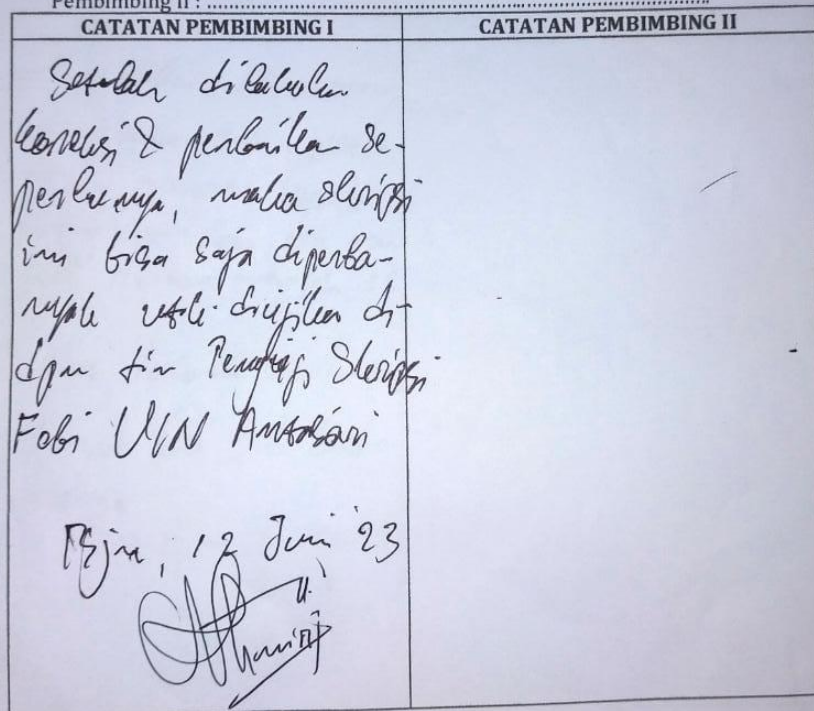 Pembimbing II : ..........
CATATAN PEMBIMBING I
CATATAN PEMBIMBING II
Setelah dilakukan
koreksi & perbaikan se-
perlunya, maka skripsi
ini bisa saja diperba-
nyak utk diujikan di-
dpn tim Penguji Skripsi
Febi UIN Antasari
Bjm, 12 Juni '23